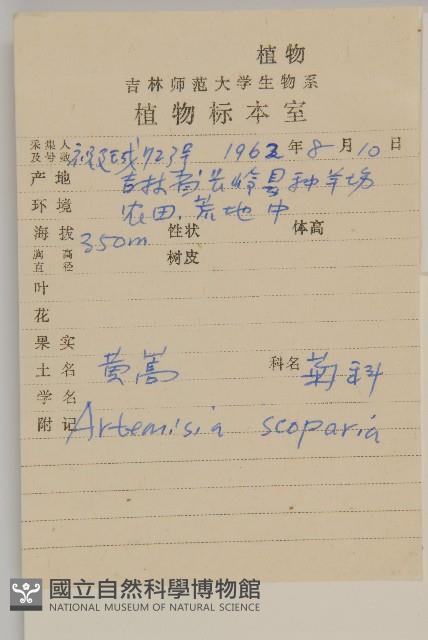 植物
吉林师范大学生物系
植物标本室
采集人及号数 祝廷成723号 1962年8月10日
产地 吉林省长岭县种羊场
环境 农田、荒地中
海拔 350m 性状 体高
胸高直径 树皮
叶
花
果实
土名 黄蒿 科名 菊科
学名
附记 Artemisia scoparia
國立自然科學博物館
NATIONAL MUSEUM OF NATURAL SCIENCE